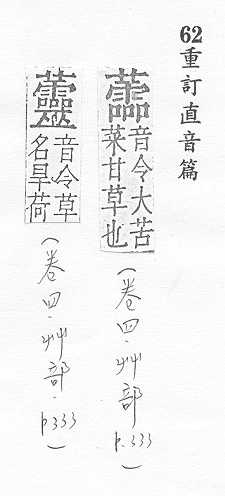 62重訂直音篇
蘦
音令大苦
菜甘草也
(卷四.艸部 p.333)
音令草
名旱荷
(卷四.艸部 p333)